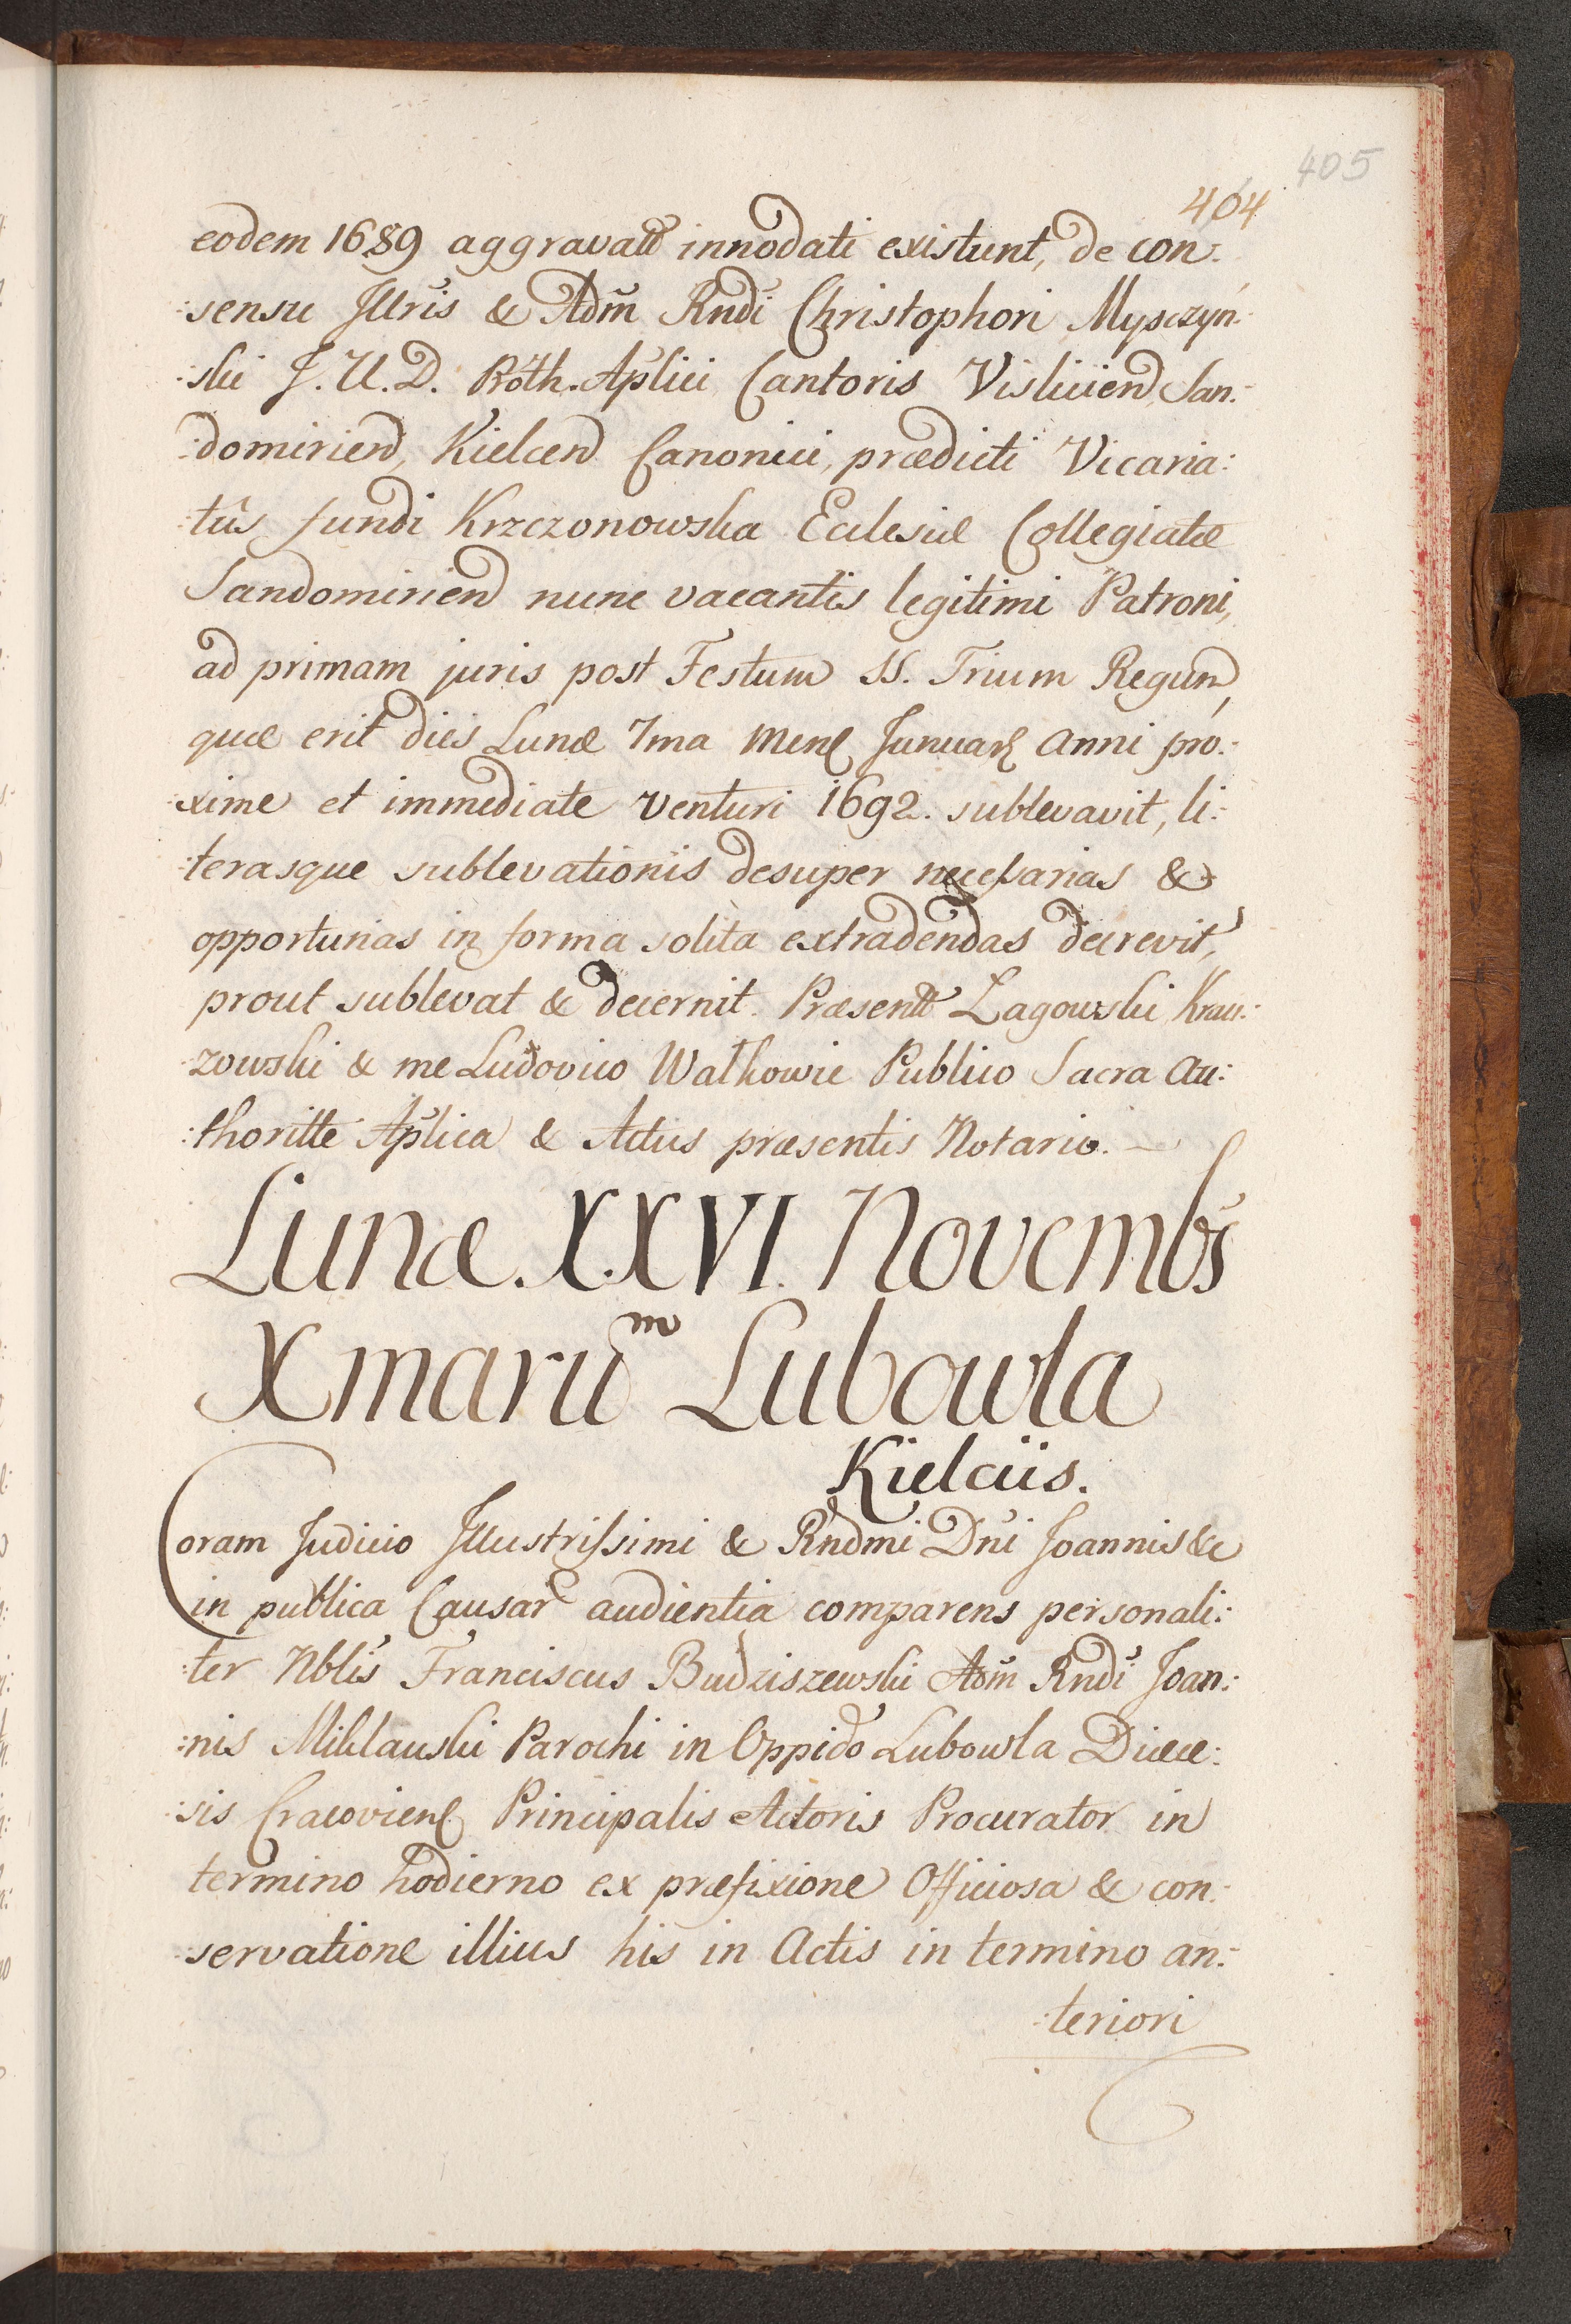 405
404
eodem 1689 aggravatt innodati existunt, de con:
:sensu Jllris & Adm̃ Rndi Christophori Mysczyń:
:ski J. U. D. Proth. Aplici Cantoris Vislicien, San:
:domirien, Kielcen Canonici, prædicti Vicaria:
:tûs fundi Krzczonowska Ecclesiæ Collegiatæ
Sandomirien nunc vacantis legitimi Patroni,
ad primam juris post Festum SS. Trium Regum,
quæ erit dies Lunæ 7ma Mens Januarij Anni pro:
:xime et immediate venturi 1692. sublevavit, li:
:terasque sublevationis desuper necessarias &
opportunas in forma solita extradendas decrevit,
prout sublevat & decernit. Præsentt Łagowski, Krau:
:zowski & me Ludovico Walkowic Publico Sacra Au:
:thoritte Aplica & Actus præsentis Notario.
Lunæ. XXVI. Novembs
Xmaru᷃m Lubowla
Kielciis.
Coram Judicio Jllustrissimi & Rndmi Dni Joannis &c
in publica Causar audientia comparens personali:
:ter Nblis Franciscus Budziszewski Adm̃ Rndi Joan:
:nis Miklauski Parochi in Oppido Lubowla Diæce:
:sis Cracoviens Principalis Actoris Procurator in
termino hodierno ex præfixione Officiosa & con:
:servatione illius his in Actis in termino an:
:teriori